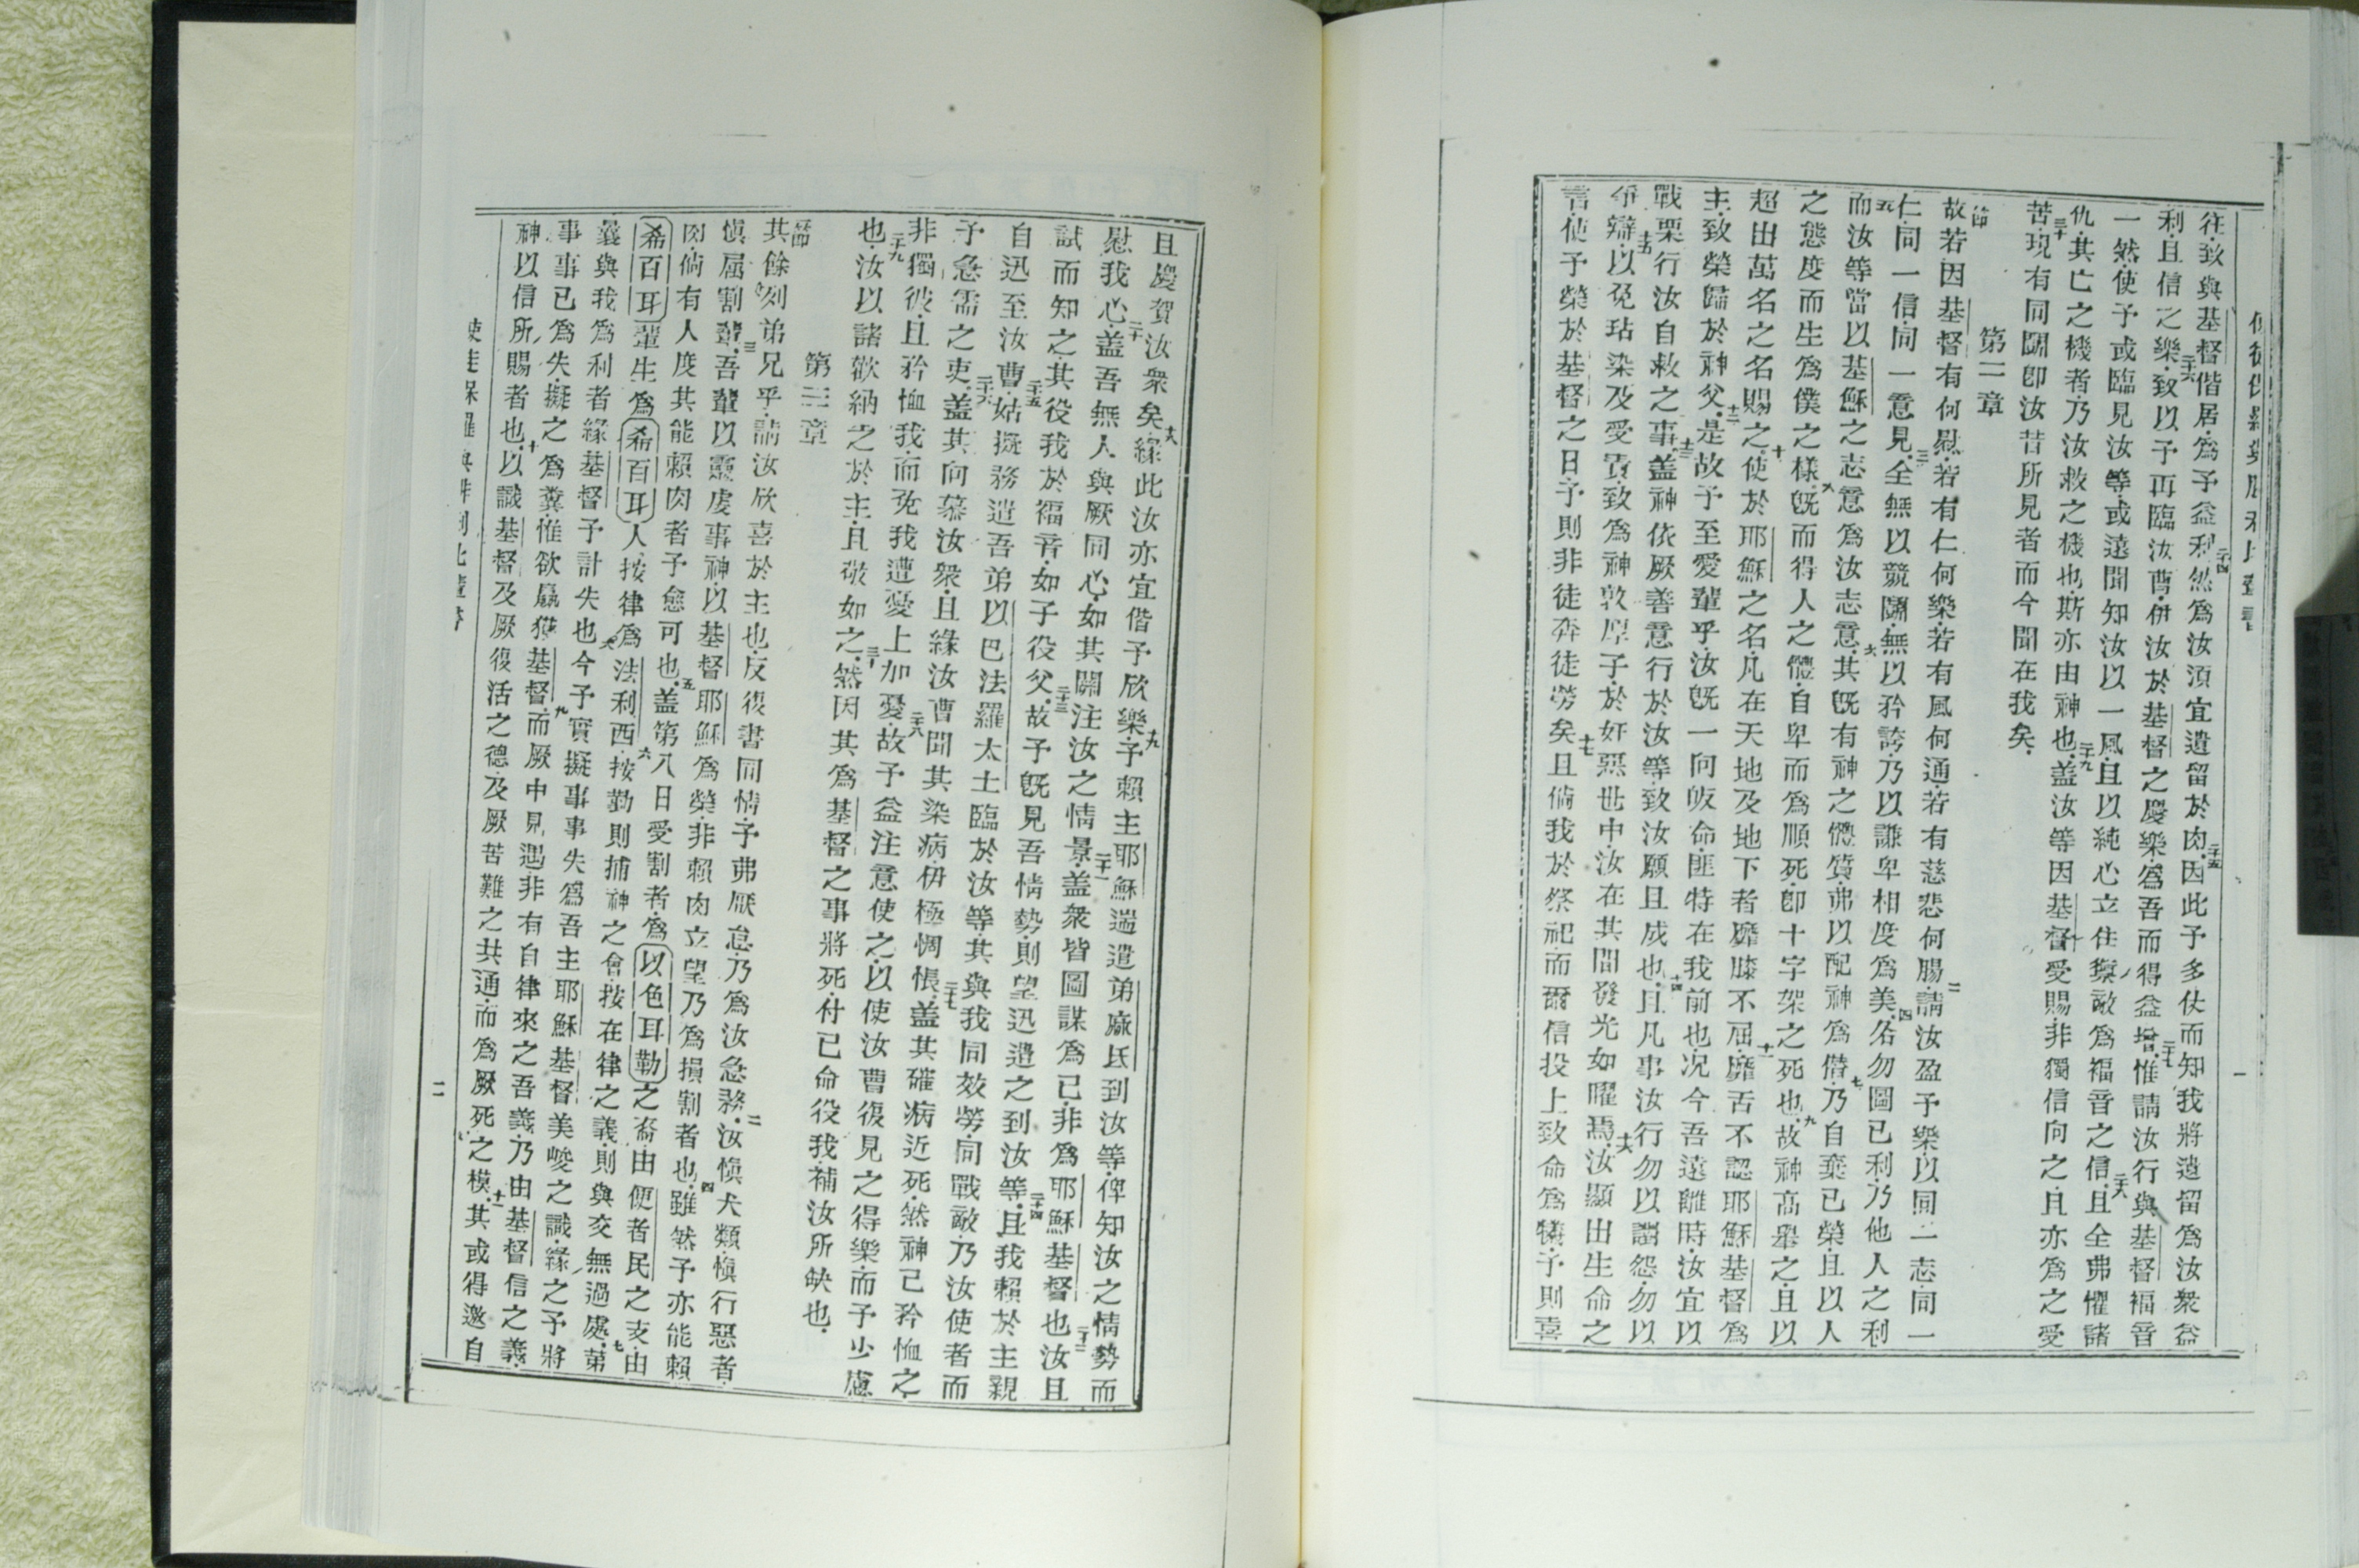 往.致與基督偕居.爲予益利.然爲汝須宜遺留於肉.因此予多仗而知我將遺留爲汝衆益
利.且信之樂.致以予再臨汝曹.伊汝於基督之慶樂.爲吾而得益增.惟請汝行與基督福音
一然.使予或臨見汝等.或遠聞知汝以一風.且以純心立住.禦敵爲福音之信.且全弗懼諸
仇.其亡之機者.乃汝救之機也.斯亦由神也.盖汝等因基督受賜.非獨信向之.且亦爲之受
苦.現有同鬬卽汝昔所見者而今聞在我矣.
第二章
故若因基督有何慰.若有仁何樂.若有風何通.若有慈悲何腸.請汝盈予樂以同一志.同一
仁.同一信.同一意見.全無以競鬬.無以矜誇.乃以謙卑相度爲美.各勿圖己利.乃他人之利
而汝等當以基穌之志意爲汝志意.其旣有神之體質.弗以配神爲僭.乃自棄己榮.且以人
之態度而生爲僕之樣.旣而得人之體.自卑而爲順死.卽十字架之死也.故神高舉之.且以
超出萬名之名賜之.使於耶穌之名.凡在天地及地下者靡膝不屈.靡舌不認耶穌基督爲
主.致榮歸於神父.是故予至愛輩乎.汝旣一向皈命.匪特在我前也.况今吾遠離時.汝宜以
戰栗行汝自救之事.盖神依厥善意行於汝等.致汝願且成也.且凡事汝行勿以謂怨.勿以
爭辯.以免玷染及受責.致爲神敦厚子.於奸惡世中.汝在其間發光如曜焉.汝顯出生命之
言.使予榮於基督之日.予則非徒奔徒勞矣.且倘我於祭祀而爾信投上致命爲犧.予則喜
一
且慶賀汝衆矣.緣此汝亦宜偕予欣樂.予賴主耶穌遄遣弟麻氐到汝等.俾知汝之情勢而
慰我心.盖吾無人與厥同心.如其關注汝之情景.盖衆皆圖謀爲己.非爲耶穌基督也.汝且
試而知之.其役我於福音.如子役父.故予旣見吾情勢.則望迅遣之到汝等.且我賴於主親
自迅至汝曹.姑擬務遣吾弟以巴法羅太土臨於汝等.其與我同效勞.同戰敵.乃汝使者而
予急需之吏.盖其向慕汝衆.且緣汝曹聞其染病.伊極惆悵.盖其確病近死.然神已矜恤之
非獨彼.且矜恤我.而免我遭憂上加憂.故予益注意使之.以使汝曹復見之得樂.而予少慮
也.汝以諸歡納之於主.且敬如之.然因其爲基督之事將死.付己命役我.補汝所缺也.
第三章
其餘列弟兄乎.請汝欣喜於主也.反復書同情.予弗厭怠.乃爲汝急務.汝愼犬類.愼行惡者.
愼屈割輩.吾輩以靈虔事神.以基督耶穌爲榮.非賴肉立望.乃爲損割者也.雖然予亦能賴
肉.倘有人度其能賴肉者.予愈可也.盖第八日受割者.爲以色耳勒之裔.由便者民之支.由
希百耳輩生爲希百耳人.按律爲法利西.按勤則捕神之會.按在律之義.則與交無過處.第
曩與我爲利者.緣基督予計失也.今予實擬事事失爲吾主耶穌基督美峻之識.緣之予將
事事已爲失.擬之爲糞.惟欲贏獲基督.而厥中見遇.非有自律來之吾義.乃由基督信之義.
神以信所賜者也.以識基督及厥復活之德.及厥苦難之共通.而爲厥死之模.其或得邀自
二